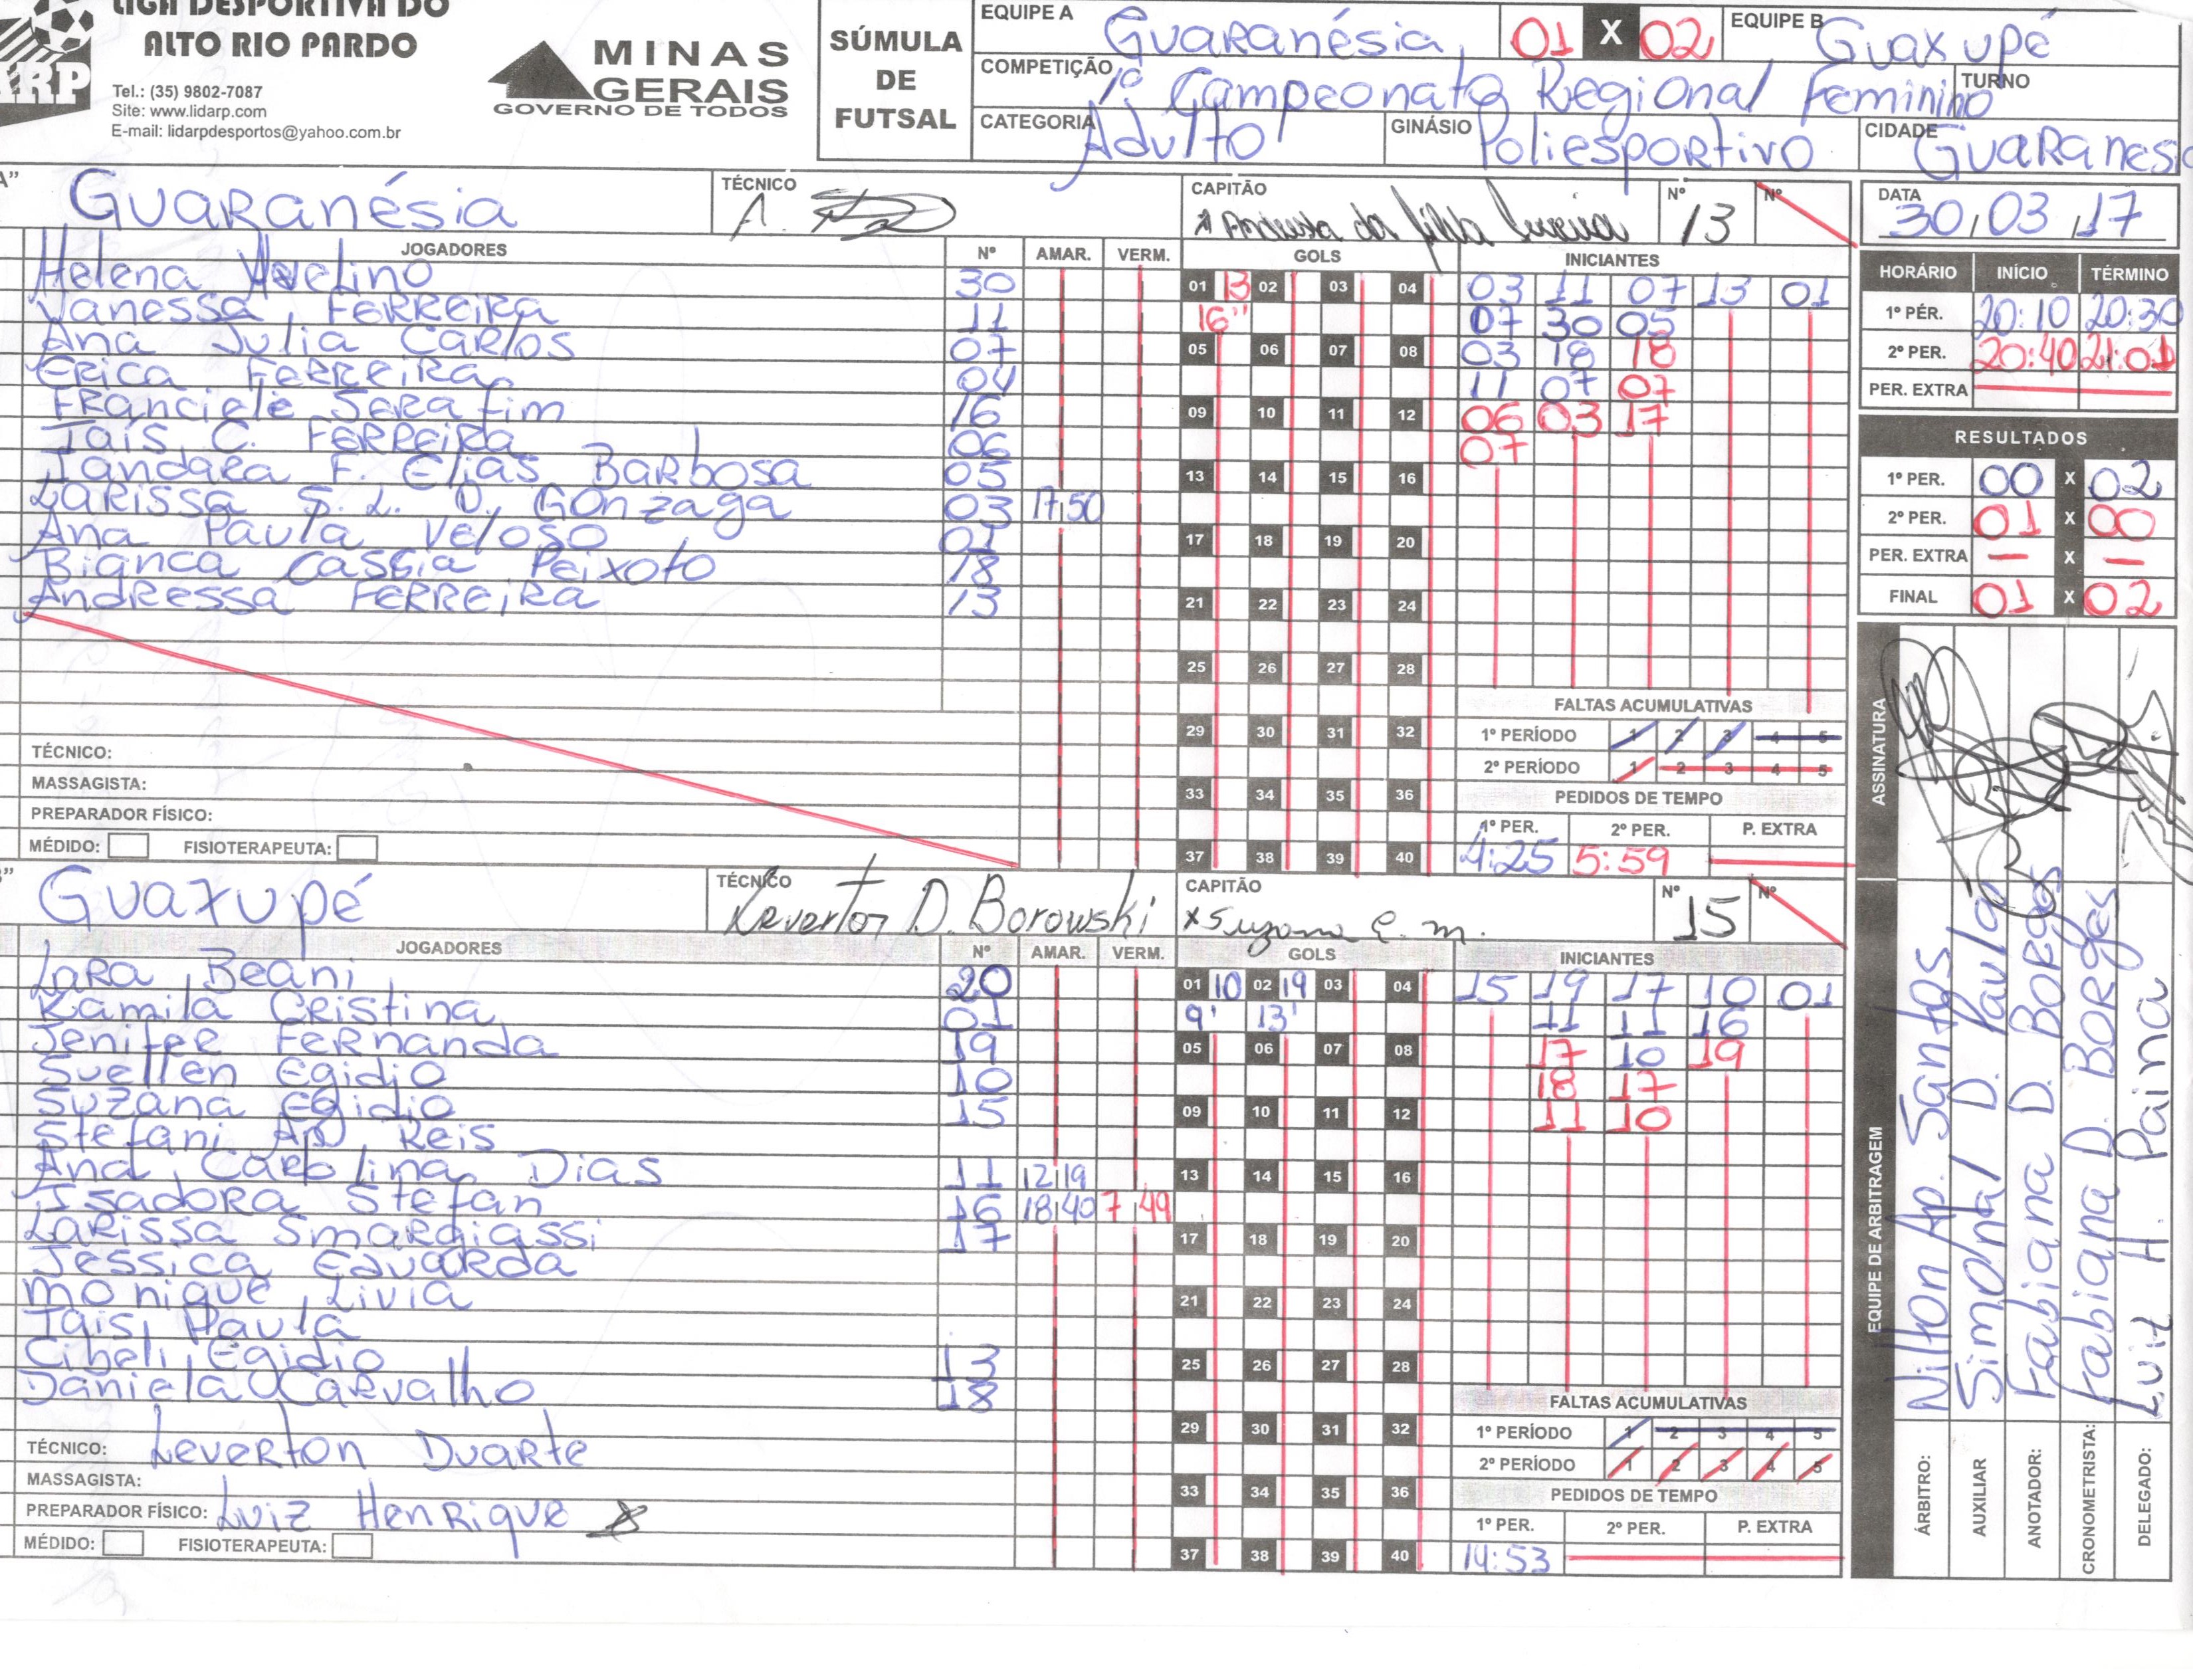 LIGA DESPORTIVA DO
ALTO RIO PARDO
ARP
Tel.: (35) 9802-7087
Site: www.lidarp.com
E-mail: lidarpdesportos@yahoo.com.br
MINAS
GERAIS
GOVERNO DE TODOS
SÚMULA
DE
FUTSAL
EQUIPE A Guaranésia 01 X 02 EQUIPE B Guaxupé
COMPETIÇÃO 1º Campeonato Regional Feminino TURNO
CATEGORIA Adulto GINÁSIO Poliesportivo CIDADE Guaranes
A" Guaranésia TÉCNICO A. CAPITÃO Nº 13 Nº
DATA 30/03/17
JOGADORES Nº AMAR. VERM. GOLS INICIANTES
Helena Avelino 30
Vanessa Ferreira 11
Ana Julia Carlos 07
Erica Ferreira 04
Franciele Serafim 16
Tais C. Ferreira 06
Iandara F. Elias Barbosa 05
Larissa S. L. D. Gonzaga 03 17:50
Ana Paula Veloso 01
Bianca Cassia Peixoto 18
Andressa Ferreira 13
01 13 02 03 04
16"
05 06 07 08
09 10 11 12
13 14 15 16
17 18 19 20
21 22 23 24
25 26 27 28
29 30 31 32
33 34 35 36
37 38 39 40
03 11 07 13 01
07 30 05
03 18 18
11 07 07
06 03 17
07
FALTAS ACUMULATIVAS
1º PERÍODO 1 2 3 4 5
2º PERÍODO 1 2 3 4 5
PEDIDOS DE TEMPO
1º PER. 2º PER. P. EXTRA
4:25 5:59
TÉCNICO:
MASSAGISTA:
PREPARADOR FÍSICO:
MÉDIDO: FISIOTERAPEUTA:
HORÁRIO INÍCIO TÉRMINO
1º PÉR. 20:10 20:30
2º PER. 20:40 21:01
PER. EXTRA
RESULTADOS
1º PER. 00 X 02
2º PER. 01 X 00
PER. EXTRA — X —
FINAL 01 X 02
" Guaxupé TÉCNICO Leverton D. Borowski CAPITÃO x Suzana E. m. Nº 15 Nº
JOGADORES Nº AMAR. VERM. GOLS INICIANTES
Lara Beani 20
Kamila Cristina 01
Jenifer Fernanda 19
Suellen Egidio 10
Suzana Egidio 15
Stefani Ap Reis
Ana Carolina Dias 11 12:19
Isadora Stefan 16 18:40 7:49
Larissa Smargiassi 17
Jessica Eduarda
Monique Livia
Tais Paula
Cibeli Egidio 13
Daniela Carvalho 18
01 10 02 19 03 04
9' 13'
05 06 07 08
09 10 11 12
13 14 15 16
17 18 19 20
21 22 23 24
25 26 27 28
29 30 31 32
33 34 35 36
37 38 39 40
15 19 17 10 01
11 11 16
17 10 19
18 17
11 10
FALTAS ACUMULATIVAS
1º PERÍODO 1 2 3 4 5
2º PERÍODO 1 2 3 4 5
PEDIDOS DE TEMPO
1º PER. 2º PER. P. EXTRA
14:53
TÉCNICO: Leverton Duarte
MASSAGISTA:
PREPARADOR FÍSICO: Luiz Henrique
MÉDIDO: FISIOTERAPEUTA:
EQUIPE DE ARBITRAGEM ASSINATURA
ÁRBITRO: Nilton Ap. Santos
AUXILIAR Simonal D. Paula
ANOTADOR: Fabiana D. Borges
CRONOMETRISTA: Fabiana D. Borges
DELEGADO: Luiz H. Paima